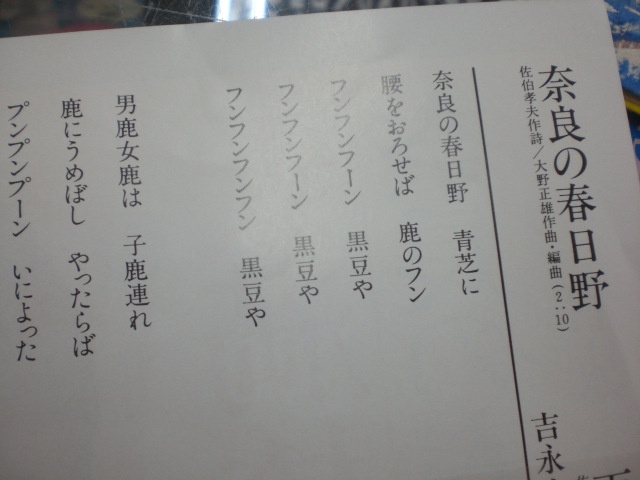 奈良の春日野
佐伯孝夫作詩／大野正雄作曲・編曲(2：10)
吉永
奈良の春日野　青芝に
腰をおろせば　鹿のフン
フンフンフーン　黒豆や
フンフンフーン　黒豆や
フンフンフンフン　黒豆や
男鹿女鹿は　子鹿連れ
鹿にうめぼし　やったらば
プンプンプーン　いによった